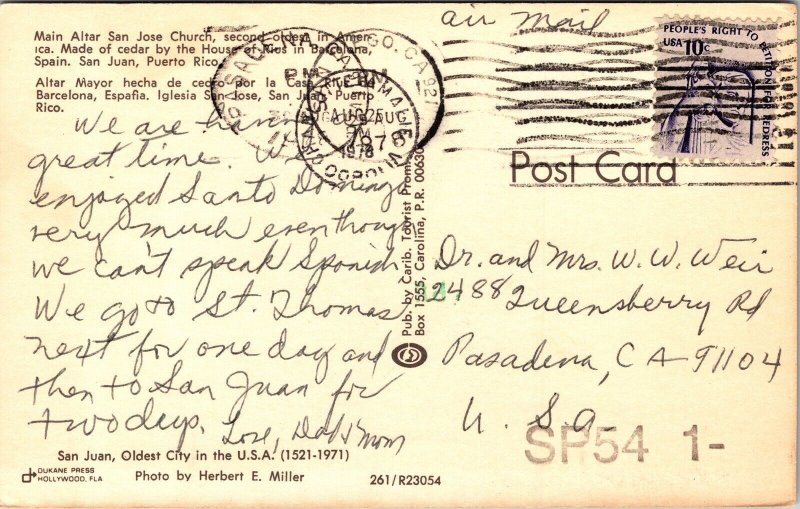 Main Altar San Jose Church, second oldest in Amer-
ica. Made of cedar by the House of Rius in Barcelona,
Spain. San Juan, Puerto Rico.
Altar Mayor hecha de cedro por la Casa Rius de
Barcelona, España. Iglesia San Jose, San Juan, Puerto
Rico.
air mail
PEOPLE'S RIGHT TO
USA 10c
PETITION FOR REDRESS
PASADENA, CA
PM
AUG
1978
Post Card
We are having
great time. We
enjoyed Santo Domingo
very much even though
we can't speak Spanish
We go to St. Thomas
next for one day and
then to San Juan for
two days.
Love, Dad & Mom
Pub. by Carib. Tourist Promo
Box 1555, Carolina, P.R. 00630
Dr. and Mrs. W. W. Weir
2488 Queensberry Rd
Pasadena, CA 91104
U. S. A.
SP54 1-
San Juan, Oldest City in the U.S.A. (1521-1971)
DUKANE PRESS
HOLLYWOOD, FLA
Photo by Herbert E. Miller
261/R23054